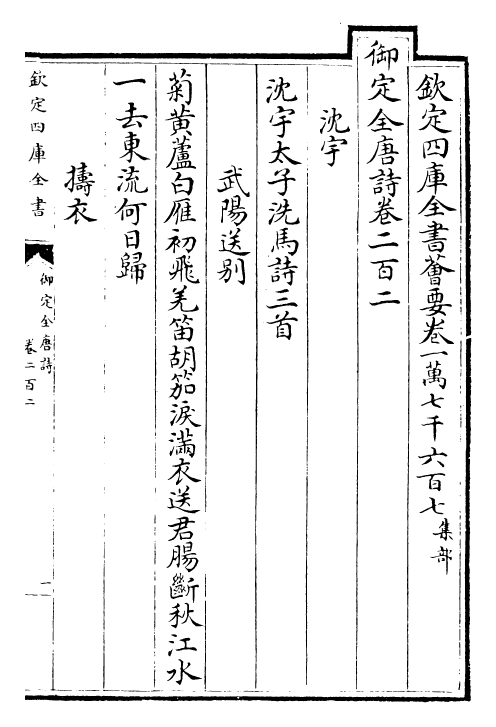 欽定四庫全書薈要卷一萬七千六百七集部
御定全唐詩卷二百二
沈宇
沈宇太子洗馬詩三首
武陽送别
菊黄蘆白雁初飛羌笛胡笳淚滿衣送君腸斷秋江水
一去東流何日歸
擣衣
欽定四庫全書
御定全唐詩
卷二百二
一